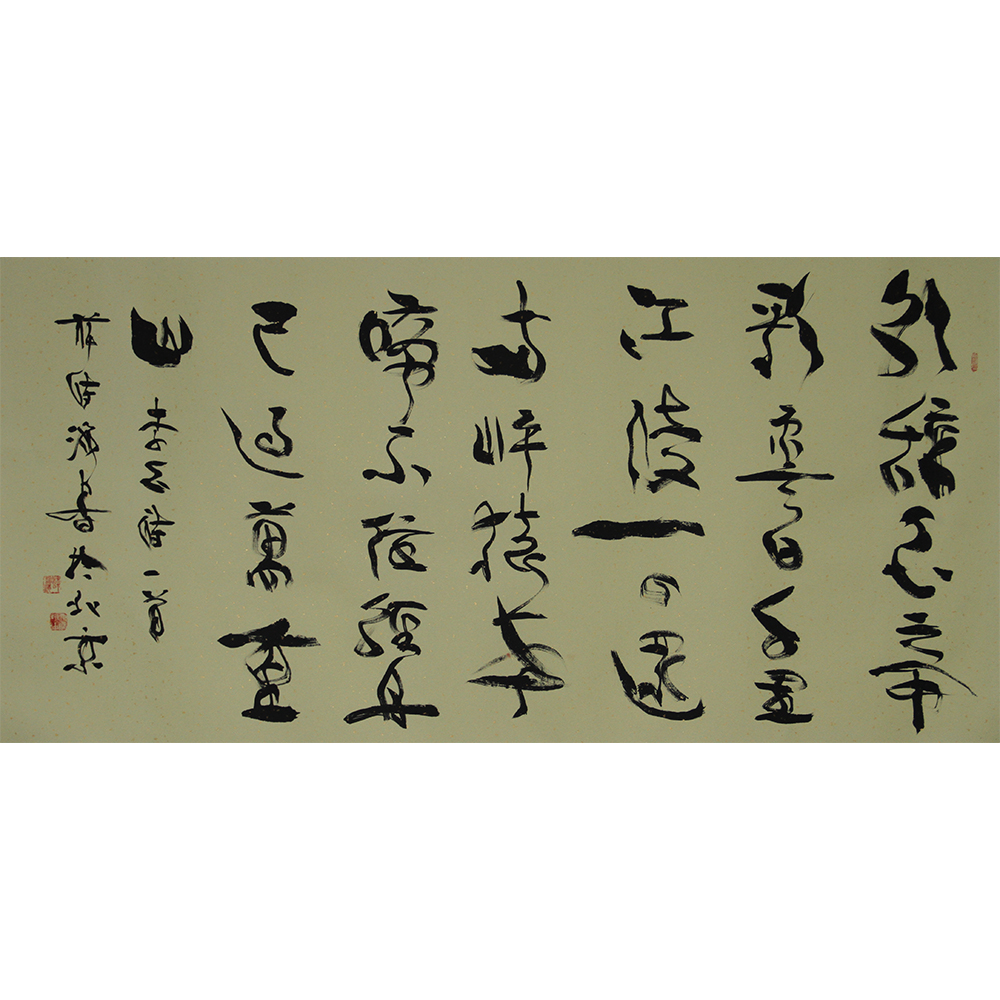 朝辭白帝
彩雲間千里
江陵一日還
兩岸猿聲
啼不住輕舟
已過萬重
山 李白詩一首
書於北京